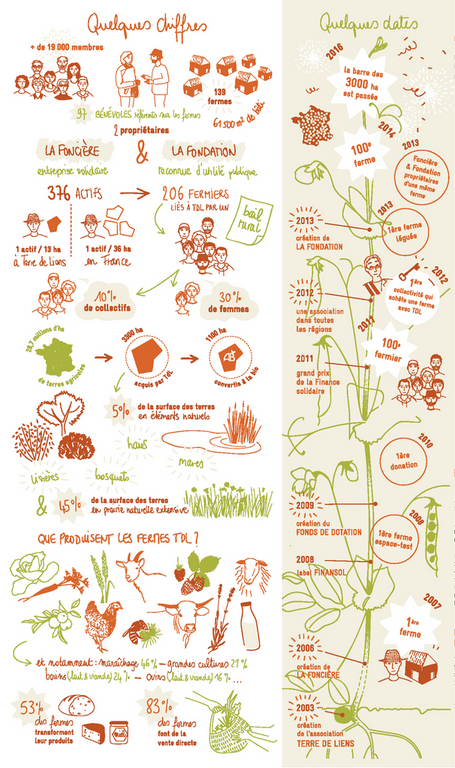 Quelques chiffres
+ de 19 000 membres
139
fermes
97 BÉNÉVOLES référents sur les fermes
61 500 m² de bâti
2 propriétaires
LA FONCIÈRE
&
LA FONDATION
entreprise solidaire
reconnue d'utilité publique
376 ACTIFS
206 FERMIERS
LIÉS À TDL PAR UN
bail
rural
1 actif / 13 ha
à Terre de Liens
1 actif / 36 ha
en France
10%
de collectifs
30%
de femmes
millions d'ha
de terres agricoles
3300 ha
acquis par TDL
1100 ha
AB
convertis à la bio
5%
de la surface des terres
en éléments naturels
haies
mares
lisières
bosquets
& 45%
de la surface des terres
en prairie naturelle extensive
QUE PRODUISENT LES FERMES TDL ?
et notamment : maraîchage 46% – grandes cultures 27%
bovins (lait & viande) 24% – ovins (lait & viande) 16%...
53%
des fermes
transforment
leur produits
83%
des fermes
font de la
vente directe
Quelques dates
2016
la barre des
3000 ha
est passée
2014
100e
ferme
2013
Foncière
& Fondation
propriétaires
d'une même
ferme
2013
1ère ferme
léguée
2013
création de
LA FONDATION
2012
1ère
collectivité qui
achète une ferme
avec TDL
2012
une association
dans toutes
les régions
2011
100e
fermier
2011
grand prix
de la Finance
solidaire
2010
1ère
donation
2009
création du
FONDS DE DOTATION
2009
1ère ferme
espace-test
2008
label FINANSOL
2007
1ère
ferme
2006
création de
LA FONCIÈRE
2003
création
de l'association
TERRE DE LIENS